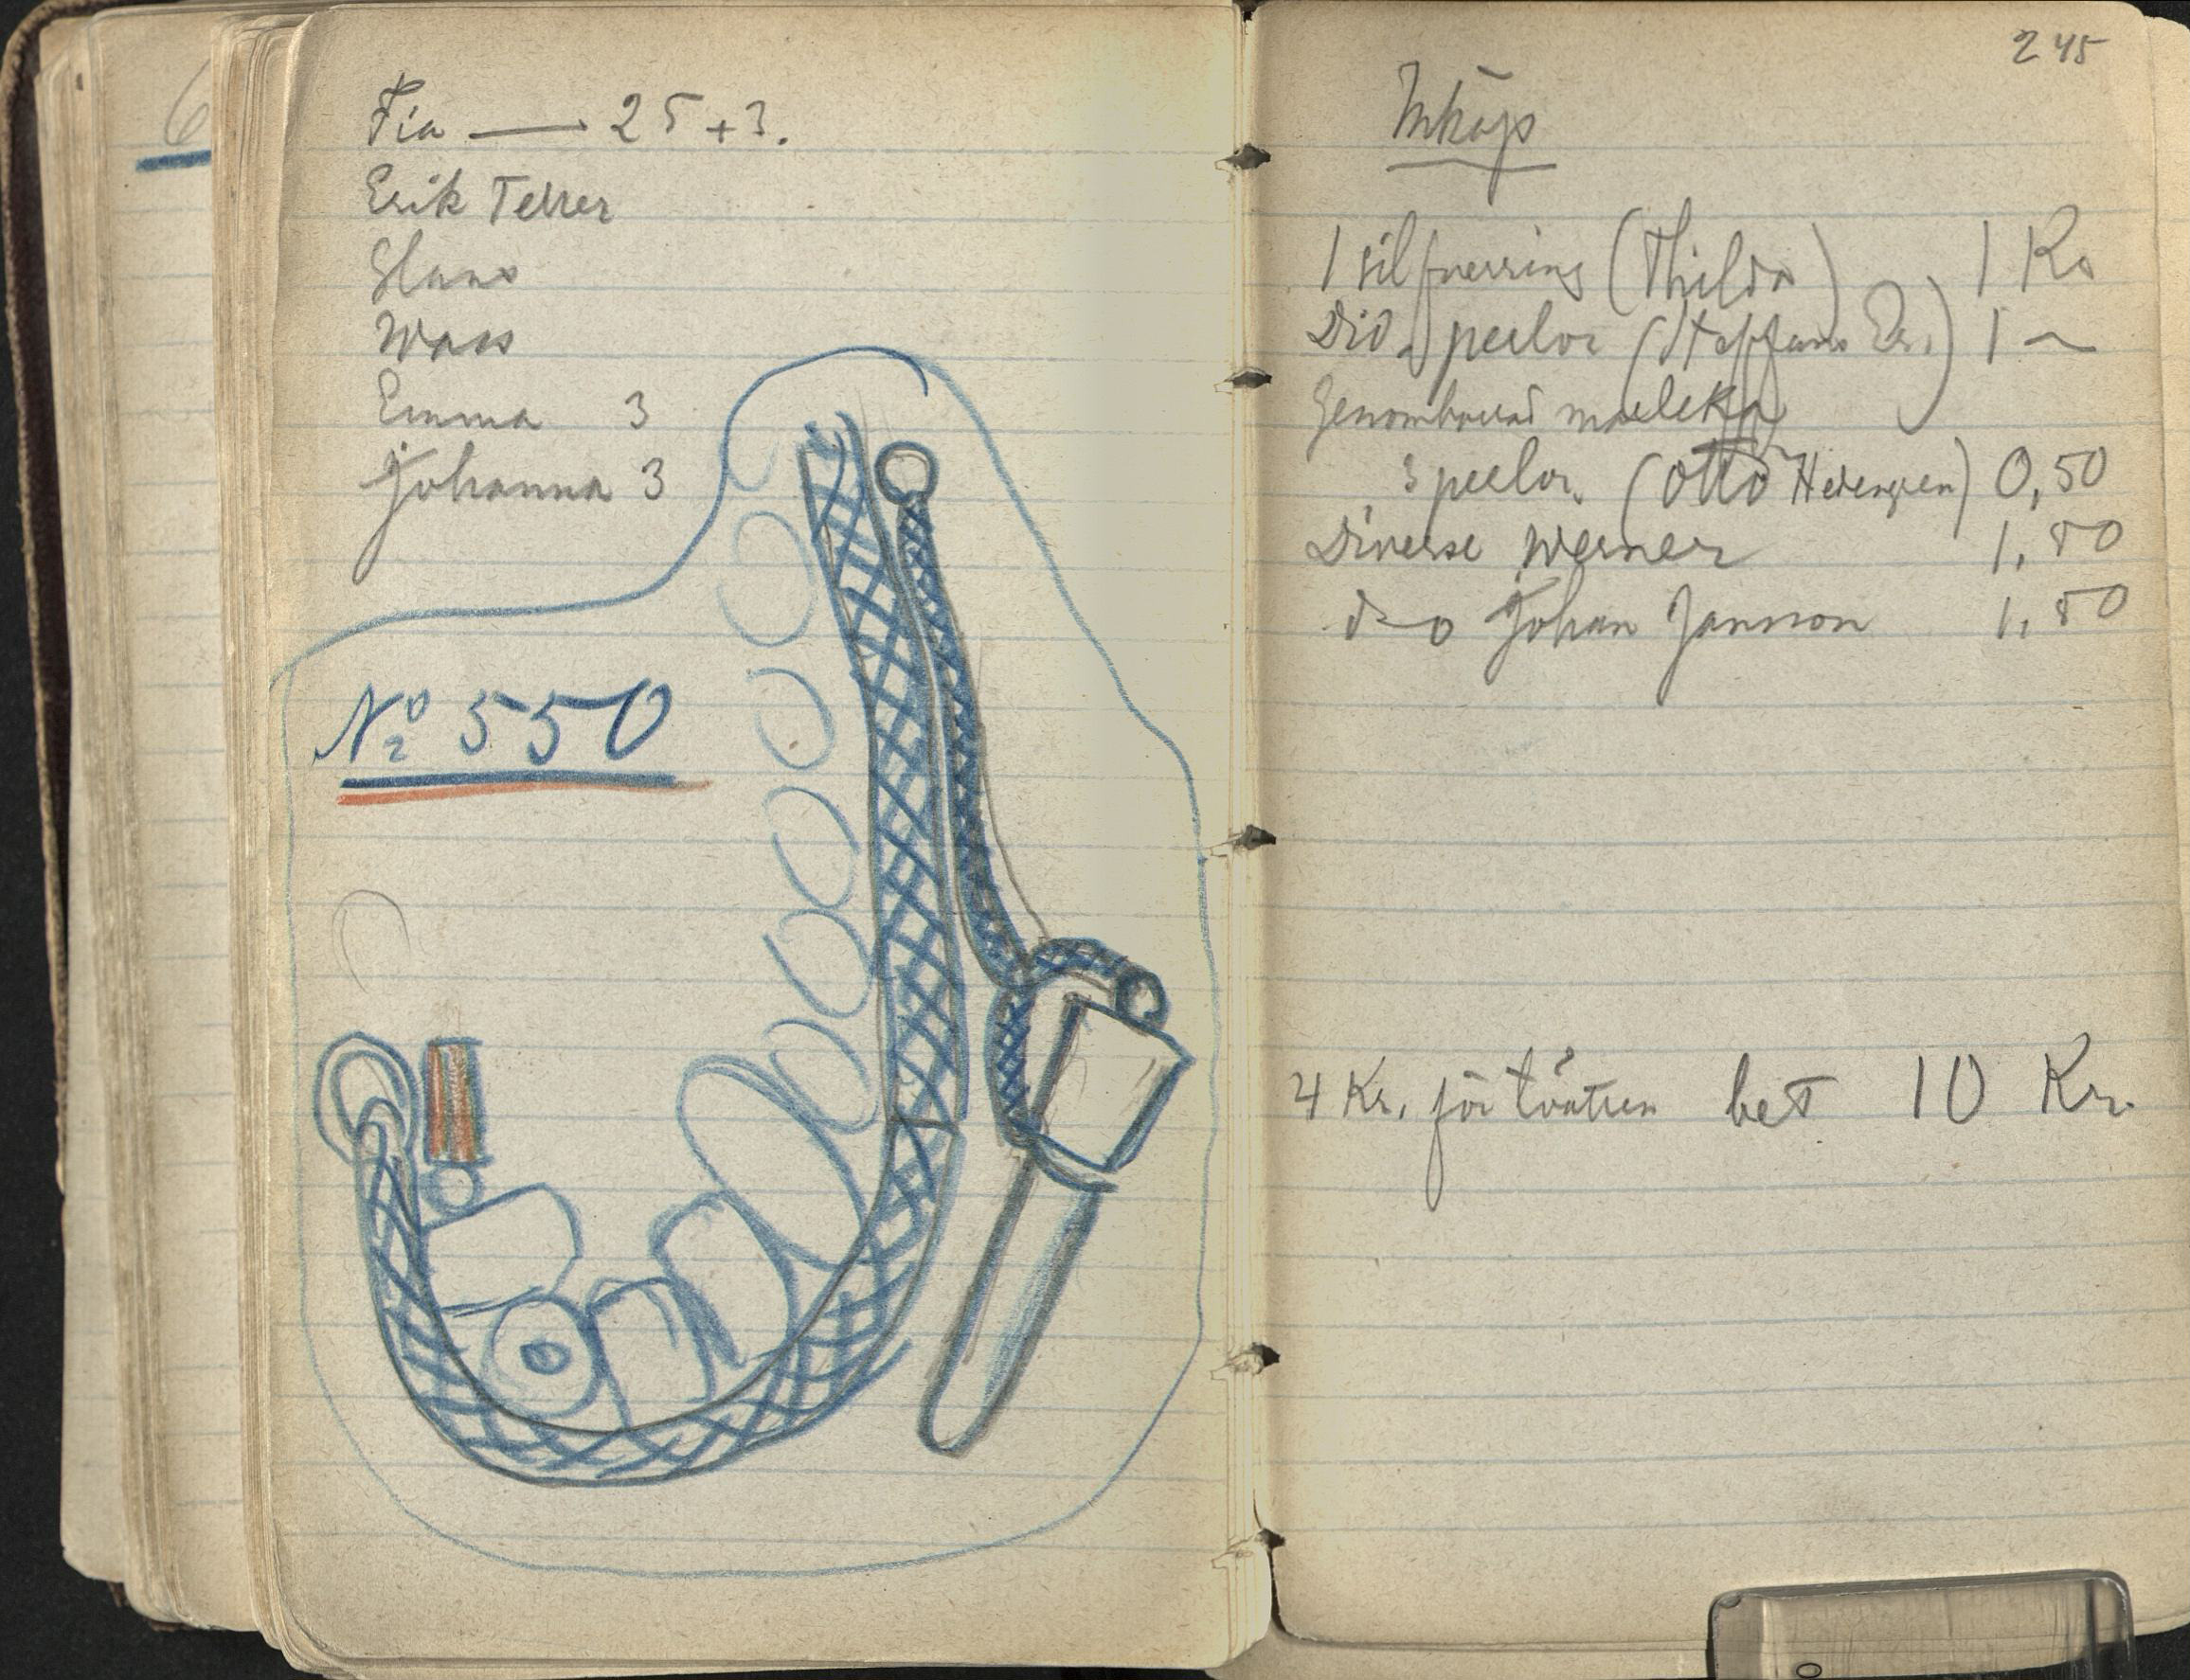 6
Fia — 25 + 3.
Erik Teller
Hans
Wass
Emma 3
Johanna 3
No 550
245
Inköp
1 silfverring (Thilda) 1 Kr
Div perlor (Steffans Er.) 1 ~
Genomborrad
3 perlor. (Otto Hedengren) 0,50
Diverse Werner 1,50
d-o Johan Jansson 1,50
4 Kr. för bet 10 Kr.